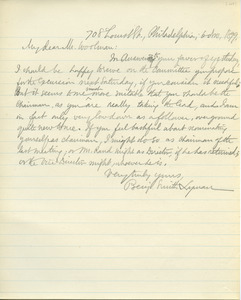 708 Locust St., Philadelphia, 6 Dec., 1899.
My dear Mr. Woolman:
In answer your favor of yesterday,
I should be happy to serve on the Committee you propose
for the excursion next Saturday, if you desire it;
but it seems to me more suitable that you should be the
chairman, as you are really taking the lead, and I am
in fact only very low down as a follower, on ground
quite new to me. If you feel bashful about nominating
yourself as chairman, I might do so as chairman of the
last meeting; or Mr. Rand might as Director, if he has returned;
or the Vice Director might, whoever he is.
Very truly yours,
Benj. Smith Lyman.